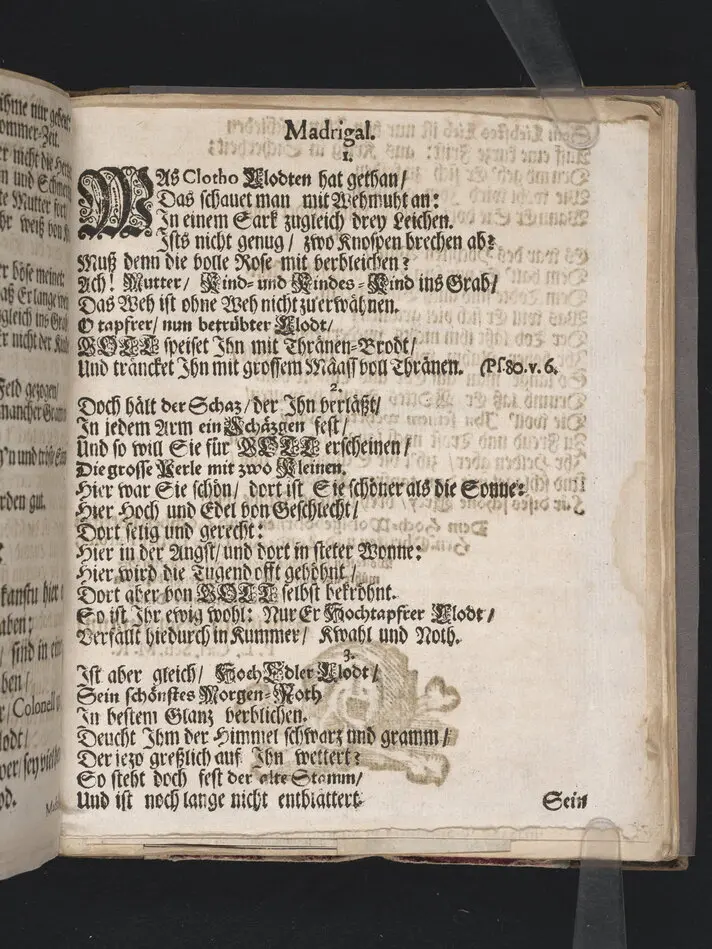 ihme nur gehen
ommer-Zeit.
r nicht die Her
n und Schm
te Mutter fort
hr weiß von
er böse meinet
aß Er lange
gleich ins Grab
r nicht der
Feld gezogen
mancher
rden gut.
kanstu hier
aben:
sind in
ben
Colonell
lodt
od.
Madrigal.
1.
WAs Clotho Klodten hat gethan/
Das schauet man mit Wehmuht an:
In einem Sark zugleich drey Leichen.
Ists nicht genug/ zwo Knospen brechen ab?
Muß denn die volle Rose mit verbleichen?
Ach! Mutter/ Kind- und Kindes-Kind ins Grab/
Das Weh ist ohne Weh nicht zu erwähnen.
O tapfrer/ nun betrübter Klodt/
GOTT speiset Ihn mit Thränen-Brodt/
Und träncket Ihn mit grossem Määss voll Thränen. (Ps. 80. v. 6.
2.
Doch hält der Schaz/ der Ihn verläßt/
In jedem Arm ein Schäzgen fest/
Und so will Sie für GOTT erscheinen/
Die grosse Perle mit zwo Kleinen.
Hier war Sie schön/ dort ist Sie schöner als die Sonne:
Hier Hoch und Edel von Geschlecht/
Dort selig und gerecht:
Hier in der Angst/ und dort in steter Wonne:
Hier wird die Tugend offt gehöhnt/
Dort aber von GOTT selbst bekröhnt.
So ist Ihr ewig wohl: Nur Er Hochtapfrer Klodt/
Verfällt hiedurch in Kummer/ Kwahl und Noth.
3.
Ist aber gleich/ HochEdler Klodt/
Sein schönstes Morgen-Roth
In bestem Glanz verblichen.
Deucht Ihm der Himmel schwarz und gramm/
Der jezo greßlich auf Ihn wettert?
So steht doch fest der alte Stamm/
Und ist noch lange nicht entblättert.
Sein